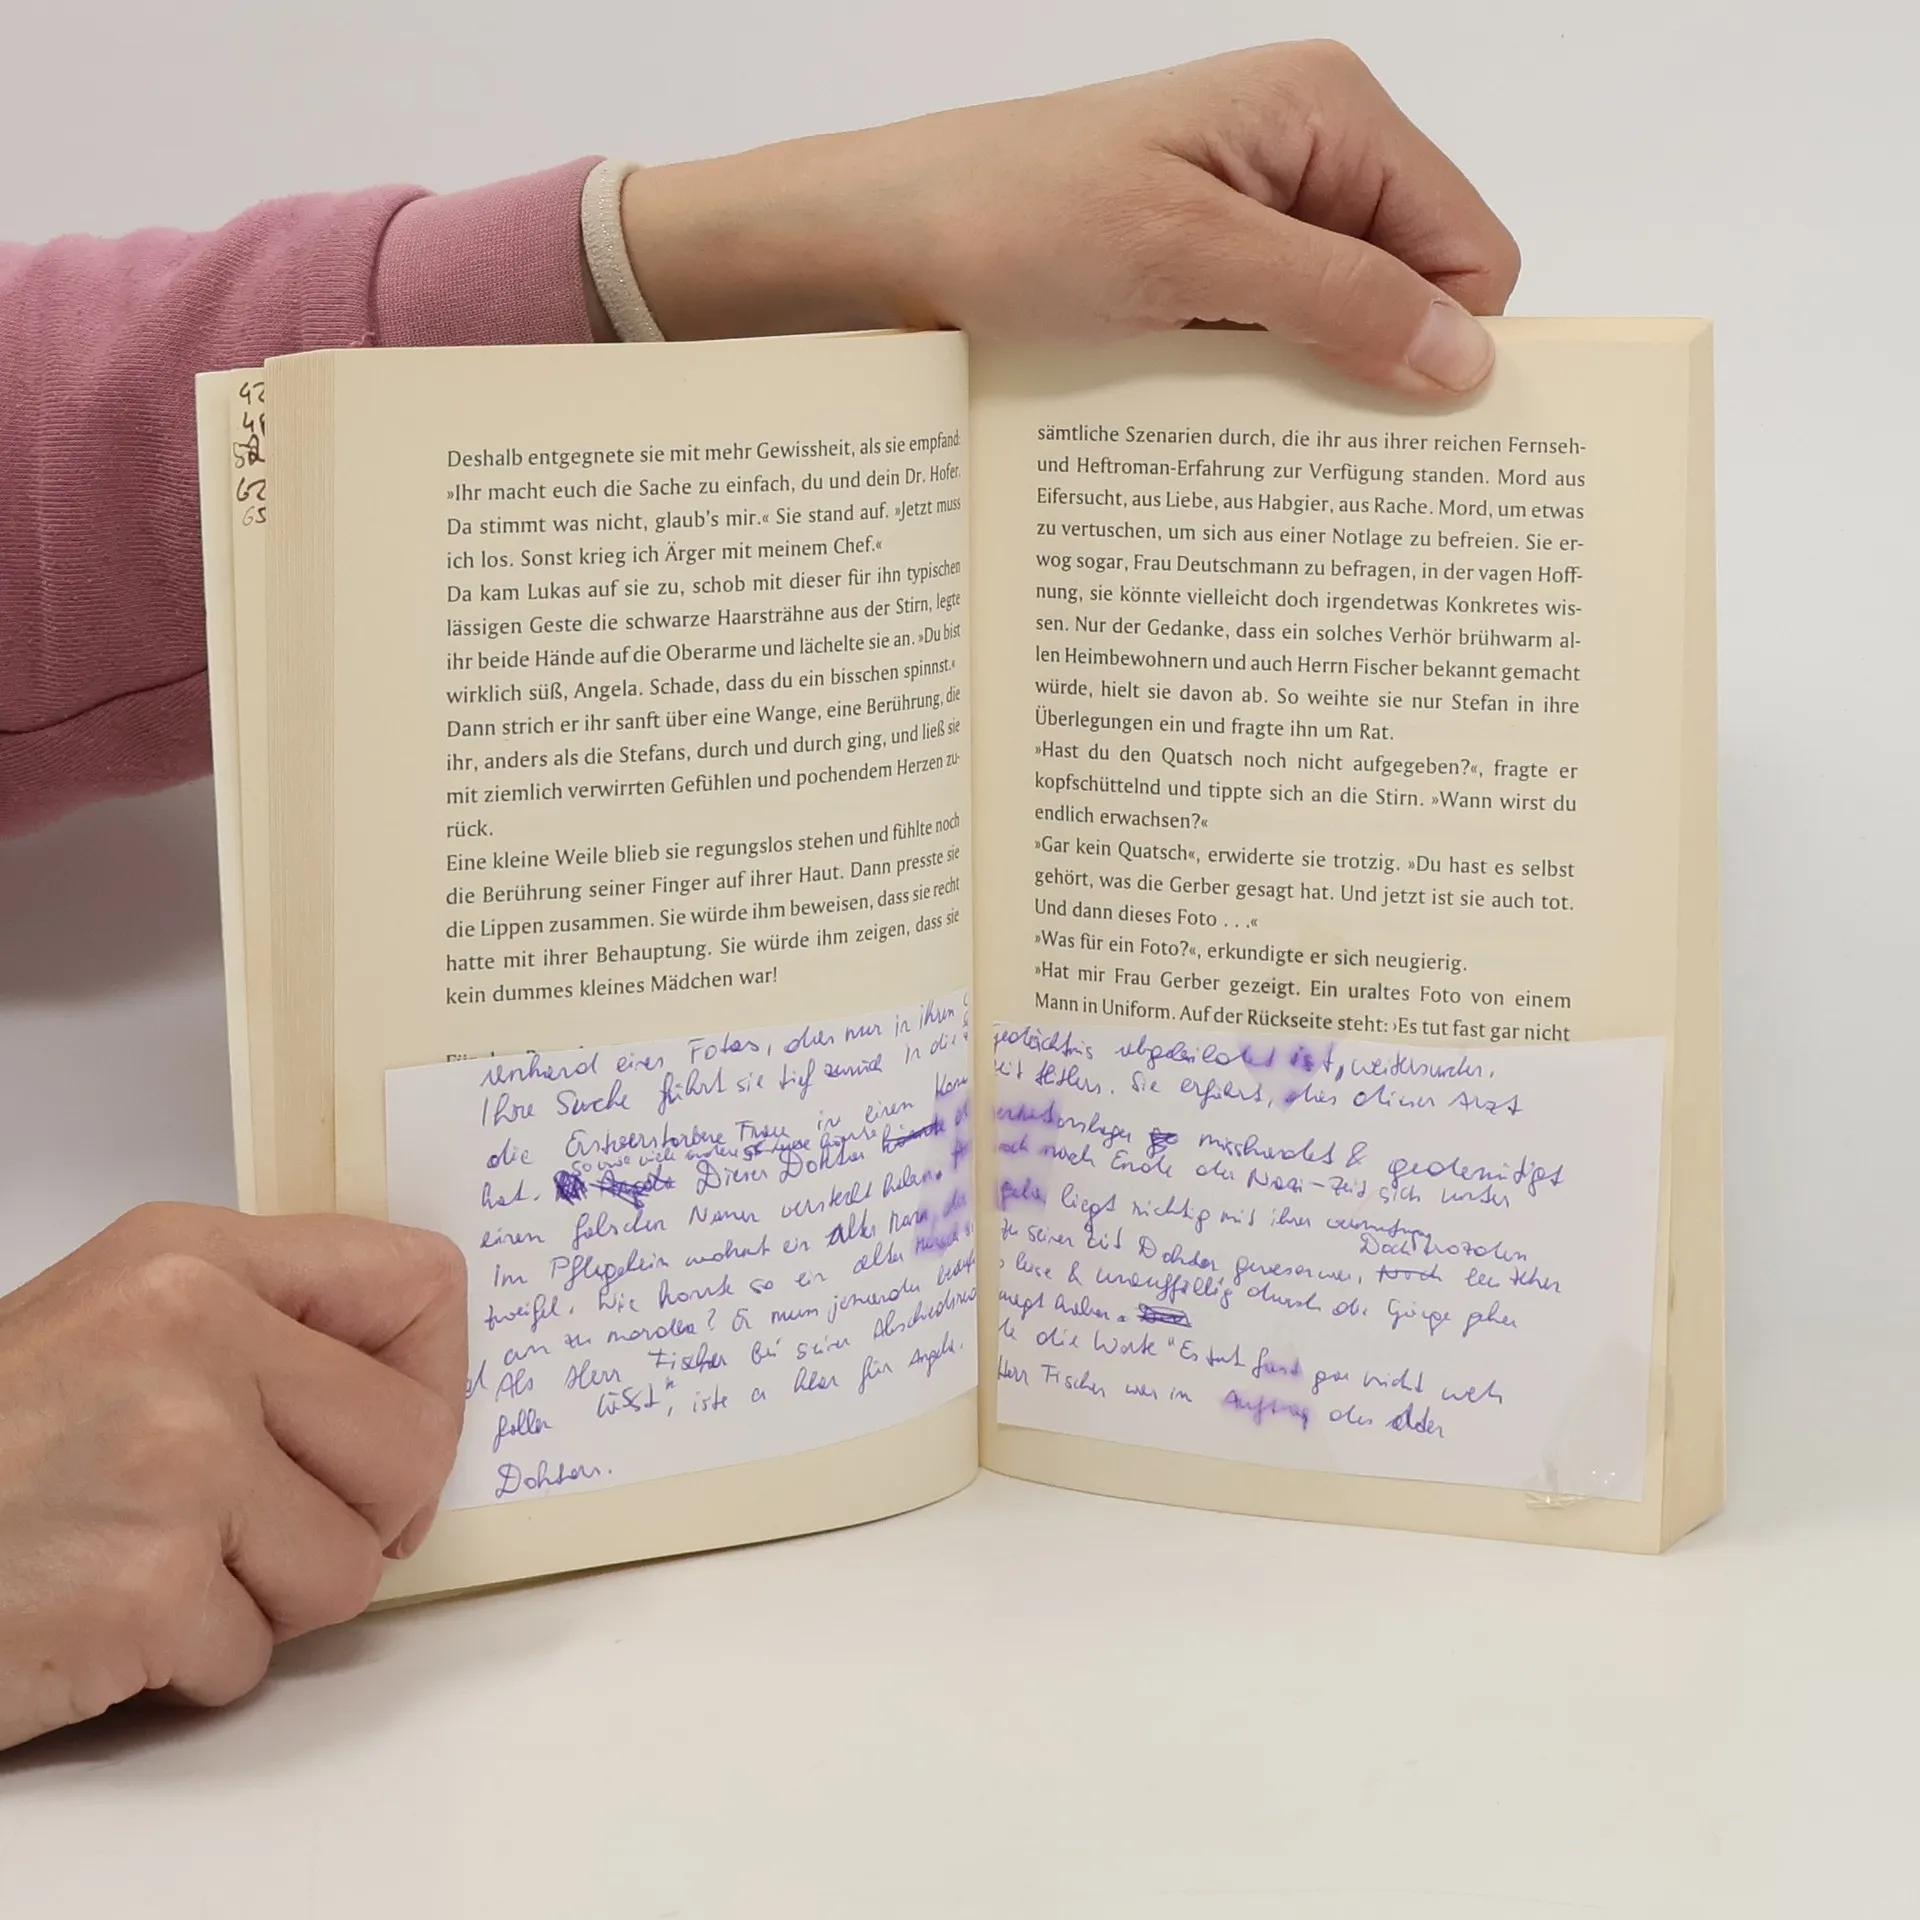 42
52
62
65
Deshalb entgegnete sie mit mehr Gewissheit, als sie empfand:
»Ihr macht euch die Sache zu einfach, du und dein Dr. Hofer.
Da stimmt was nicht, glaub's mir.« Sie stand auf. »Jetzt muss
ich los. Sonst krieg ich Ärger mit meinem Chef.«
Da kam Lukas auf sie zu, schob mit dieser für ihn typischen
lässigen Geste die schwarze Haarsträhne aus der Stirn, legte
ihr beide Hände auf die Oberarme und lächelte sie an. »Du bist
wirklich süß, Angela. Schade, dass du ein bisschen spinnst.«
Dann strich er ihr sanft über eine Wange, eine Berührung, die
ihr, anders als die Stefans, durch und durch ging, und ließ sie
mit ziemlich verwirrten Gefühlen und pochendem Herzen zu-
rück.
Eine kleine Weile blieb sie regungslos stehen und fühlte noch
die Berührung seiner Finger auf ihrer Haut. Dann presste sie
die Lippen zusammen. Sie würde ihm beweisen, dass sie recht
hatte mit ihrer Behauptung. Sie würde ihm zeigen, dass sie
kein dummes kleines Mädchen war!
anhand eines Fotos, das nur in ihren
Ihre Suche führt sie tief zurück in die
die Erstverstorbene Frau in einen
hat. so wie viele andere Dieser Doktor könnte
einen falschen Namen versteckt haben.
Im Pflegeheim wohnt ein alter Mann, der
Zweifel. Wie konnte so ein alter Mensch
an zu morden? Er muss jemanden
Als Herr Fischer bei seiner
fallen lässt", ist es klar für Angela.
Doktors.
sämtliche Szenarien durch, die ihr aus ihrer reichen Fernseh-
und Heftroman-Erfahrung zur Verfügung standen. Mord aus
Eifersucht, aus Liebe, aus Habgier, aus Rache. Mord, um etwas
zu vertuschen, um sich aus einer Notlage zu befreien. Sie er-
wog sogar, Frau Deutschmann zu befragen, in der vagen Hoff-
nung, sie könnte vielleicht doch irgendetwas Konkretes wis-
sen. Nur der Gedanke, dass ein solches Verhör brühwarm al-
len Heimbewohnern und auch Herrn Fischer bekannt gemacht
würde, hielt sie davon ab. So weihte sie nur Stefan in ihre
Überlegungen ein und fragte ihn um Rat.
»Hast du den Quatsch noch nicht aufgegeben?«, fragte er
kopfschüttelnd und tippte sich an die Stirn. »Wann wirst du
endlich erwachsen?«
»Gar kein Quatsch«, erwiderte sie trotzig. »Du hast es selbst
gehört, was die Gerber gesagt hat. Und jetzt ist sie auch tot.
Und dann dieses Foto . . .«
»Was für ein Foto?«, erkundigte er sich neugierig.
»Hat mir Frau Gerber gezeigt. Ein uraltes Foto von einem
Mann in Uniform. Auf der Rückseite steht: ›Es tut fast gar nicht
gedächtnis abgebildet ist, weitersuchen.
Hitlers. Sie erfährt, das dieser Arzt
misshandelt & gedemütigt
nach Ende der Nazi-Zeit sich unter
liegt richtig mit ihrer vermutung
zu seiner Zeit Doktor gewesen war. Noch Doch trotzdem
leise & unauffällig durch die Gänge gehen
haben.
die Worte "Es tut fast gar nicht weh
Herr Fischer war im Auftrag des